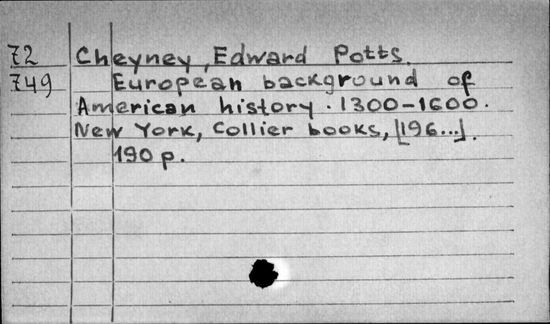 72 Cheyney, Edward Potts.
749 European background of
American history. 1300-1600.
New York, Collier books, [196...].
190 p.